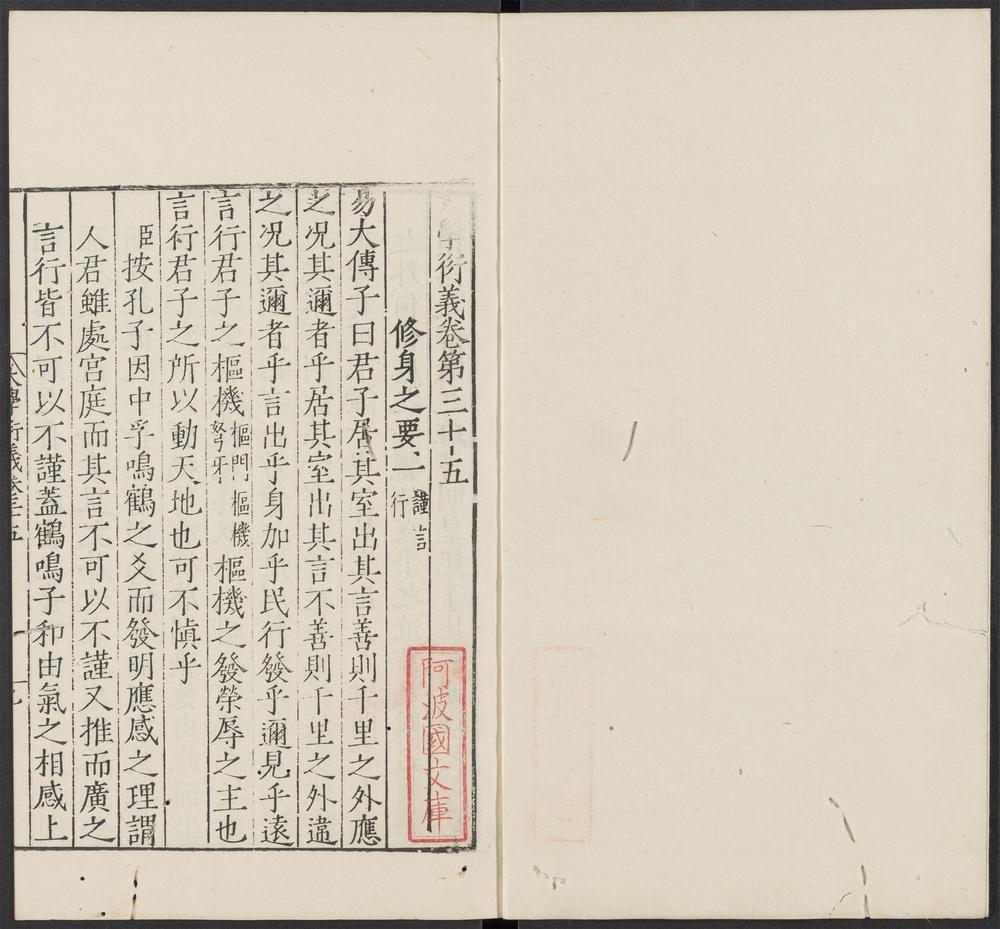 學衍義卷第三十五
修身之要一 謹言行
易大傳子曰君子居其室出其言善則千里之外應
之況其邇者乎居其室出其言不善則千里之外違
之況其邇者乎言出乎身加乎民行發乎邇見乎遠
言行君子之樞機樞門樞機弩牙樞機之發榮辱之主也
言行君子之所以動天地也可不愼乎
臣按孔子因中孚鳴鶴之爻而發明應感之理謂
人君雖處宮庭而其言不可以不謹又推而廣之
言行皆不可以不謹蓋鶴鳴子和由氣之相感上
大學衍義卷三十五
阿波國文庫